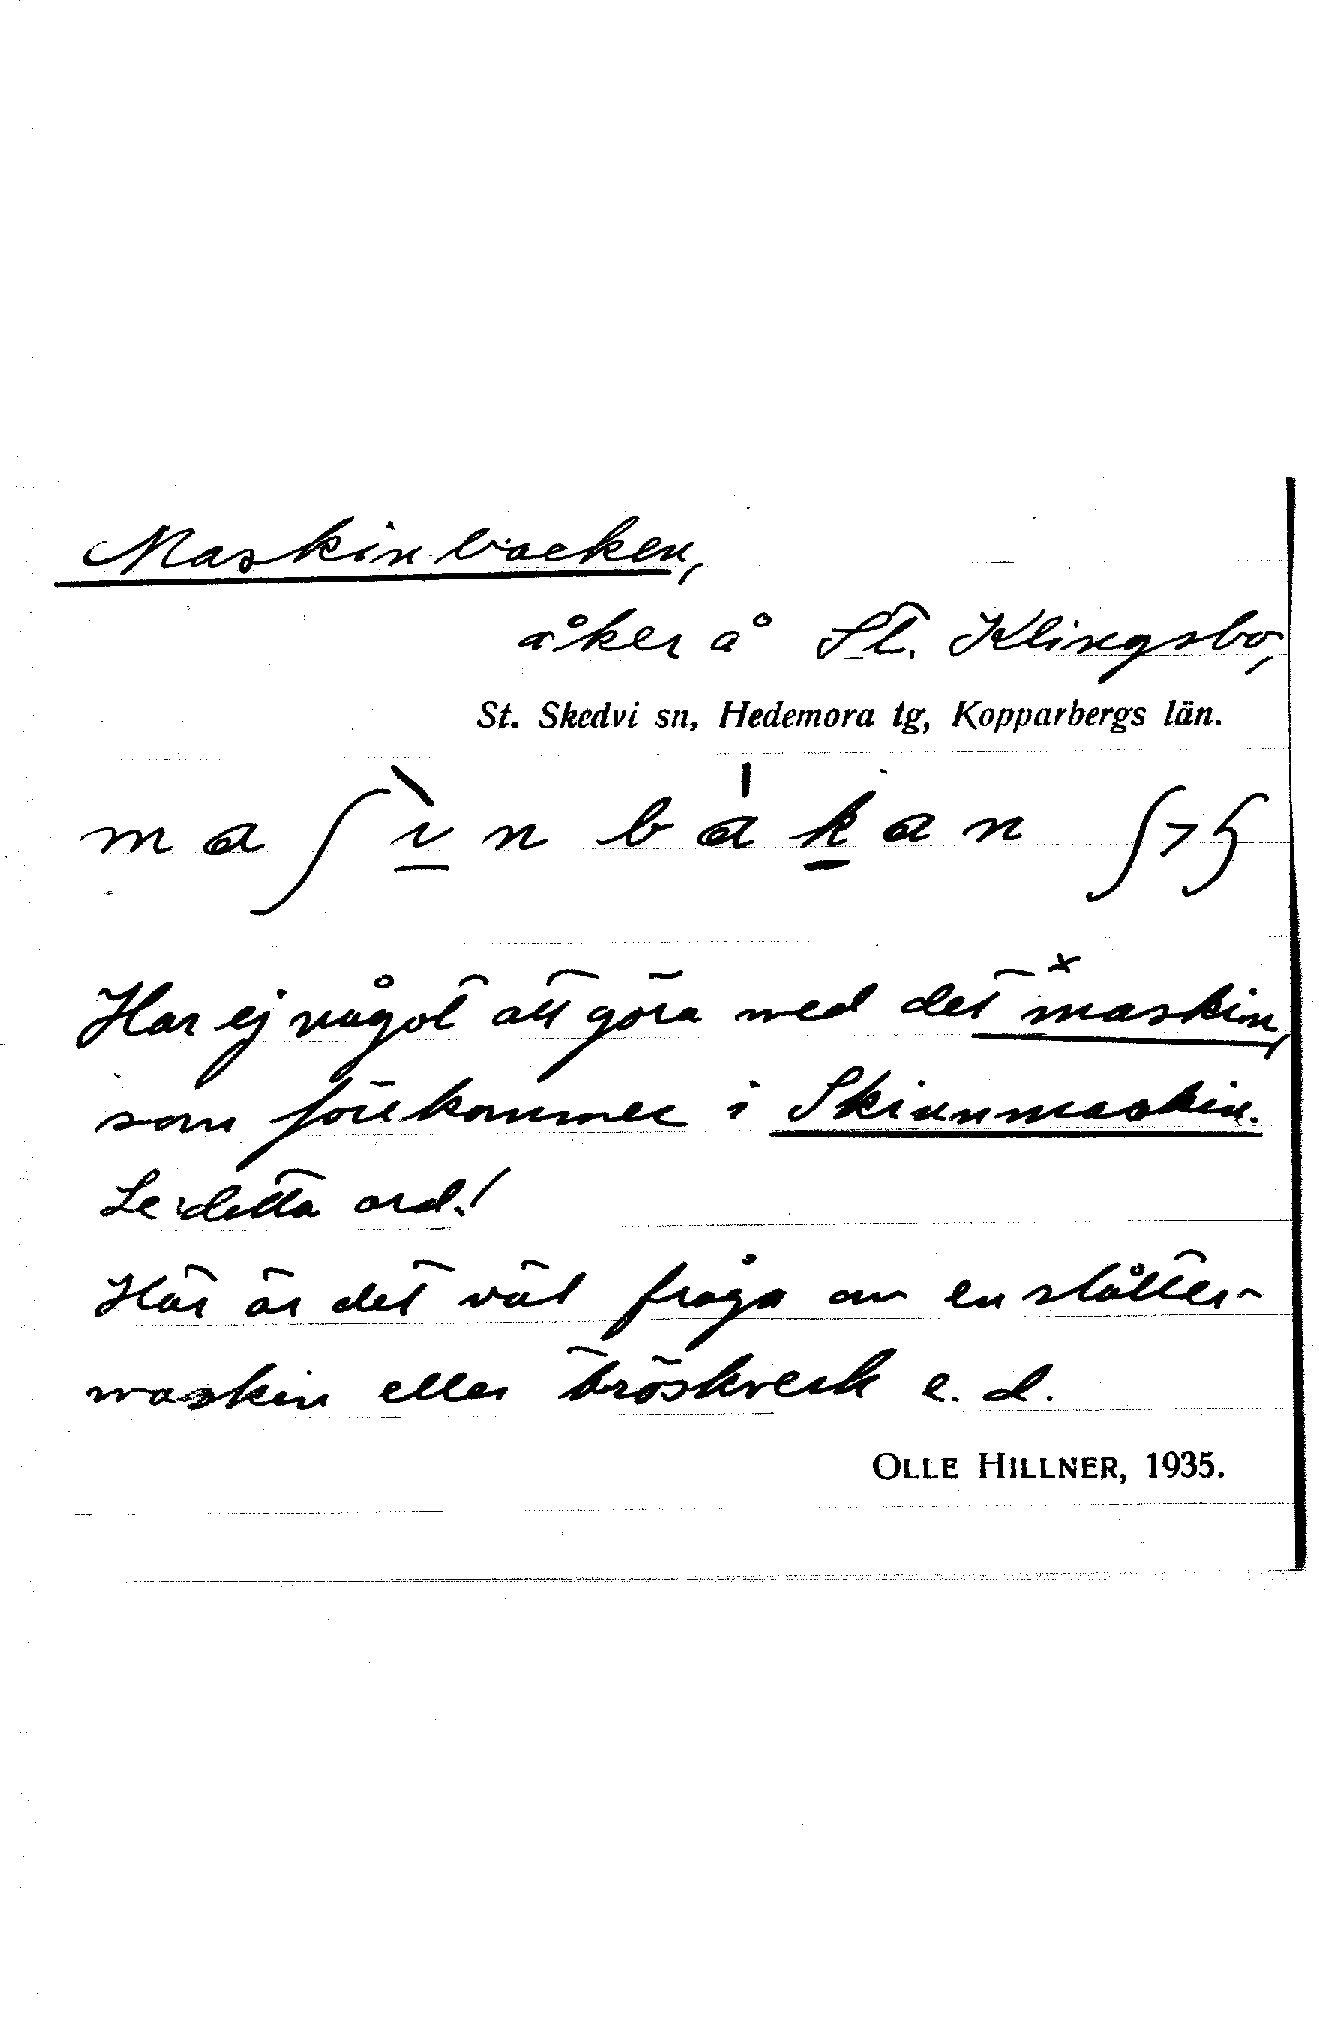 Maskinbacken,
åker å St. Klingsbo,
St. Skedvi sn, Hedemora tg, Kopparbergs län.
maʃìn bákan
Har ej något att göra med det ˣmaskin,
som förekommer i Skinnmaskin.
Se detta ord!
Här är det väl fråga om en slåtter-
maskin eller tröskverk e. d.
OLLE HILLNER, 1935.